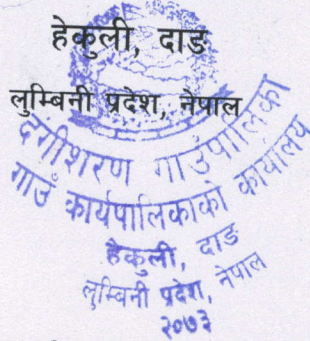 हेकुली, दाङ
लुम्बिनी प्रदेश, नेपाल
दंगीशरण गाउँपालिका
गाउँ कार्यपालिकाको कार्यालय
हेकुली, दाङ
लुम्बिनी प्रदेश, नेपाल
२०७३